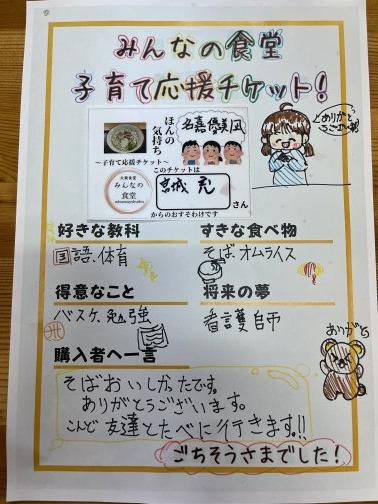 みんなの食堂
子育て応援チケット!
ほんの
気持ち
~子育て応援チケット~
このチケットは
大衆食堂
みんなの
食堂
さん
からのおすそわけです
ありがとう
ございます
好きな教科
国語、体育
すきな食べ物
そば、オムライス
得意なこと
バスケ、勉強
将来の夢
看護師
ありがと
購入者へ一言
そばおいしかったです。
ありがとうございます。
こんど友達とたべに行きます!!
ごちそうさまでした!